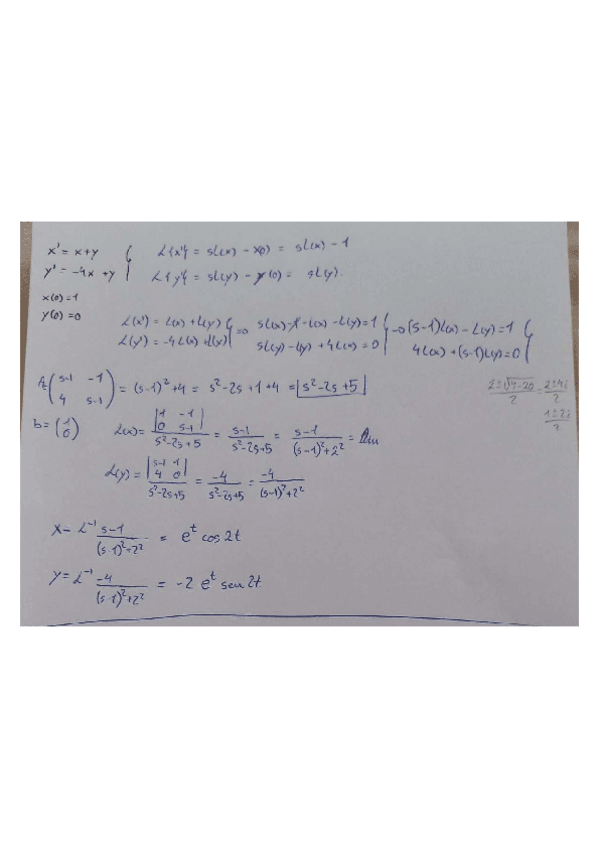 x' = x+y { L{x'} = sL(x) - x(0) = sL(x) - 1
y' = -4x +y { L{y'} = sL(y) - y(0) = sL(y).
x(0)=1
y(0)=0
L(x') = L(x) + L(y) } => sL(x) -1 -L(x) -L(y)=1 } -> (s-1)L(x) - L(y)=1 }
L(y') = -4L(x) + L(y) } sL(y) - L(y) + 4L(x) = 0 } 4L(x) + (s-1)L(y)=0 }
A = ( s-1 -1 ; 4 s-1 ) = (s-1)²+4 = s²-2s+1+4 = |s²-2s+5|
(2±√(4-20))/2 = (2±4i)/2
1±2i
b = (1 ; 0) L(x) = |1 -1 ; 0 s-1| / (s²-2s+5) = (s-1)/(s²-2s+5) = (s-1)/((s-1)²+2²) =
L(y) = |s-1 1 ; 4 0| / (s²-2s+5) = -4/(s²-2s+5) = -4/((s-1)²+2²)
x = L⁻¹ (s-1)/((s-1)²+2²) = e^t cos 2t
y = L⁻¹ -4/((s-1)²+2²) = -2 e^t sen 2t.